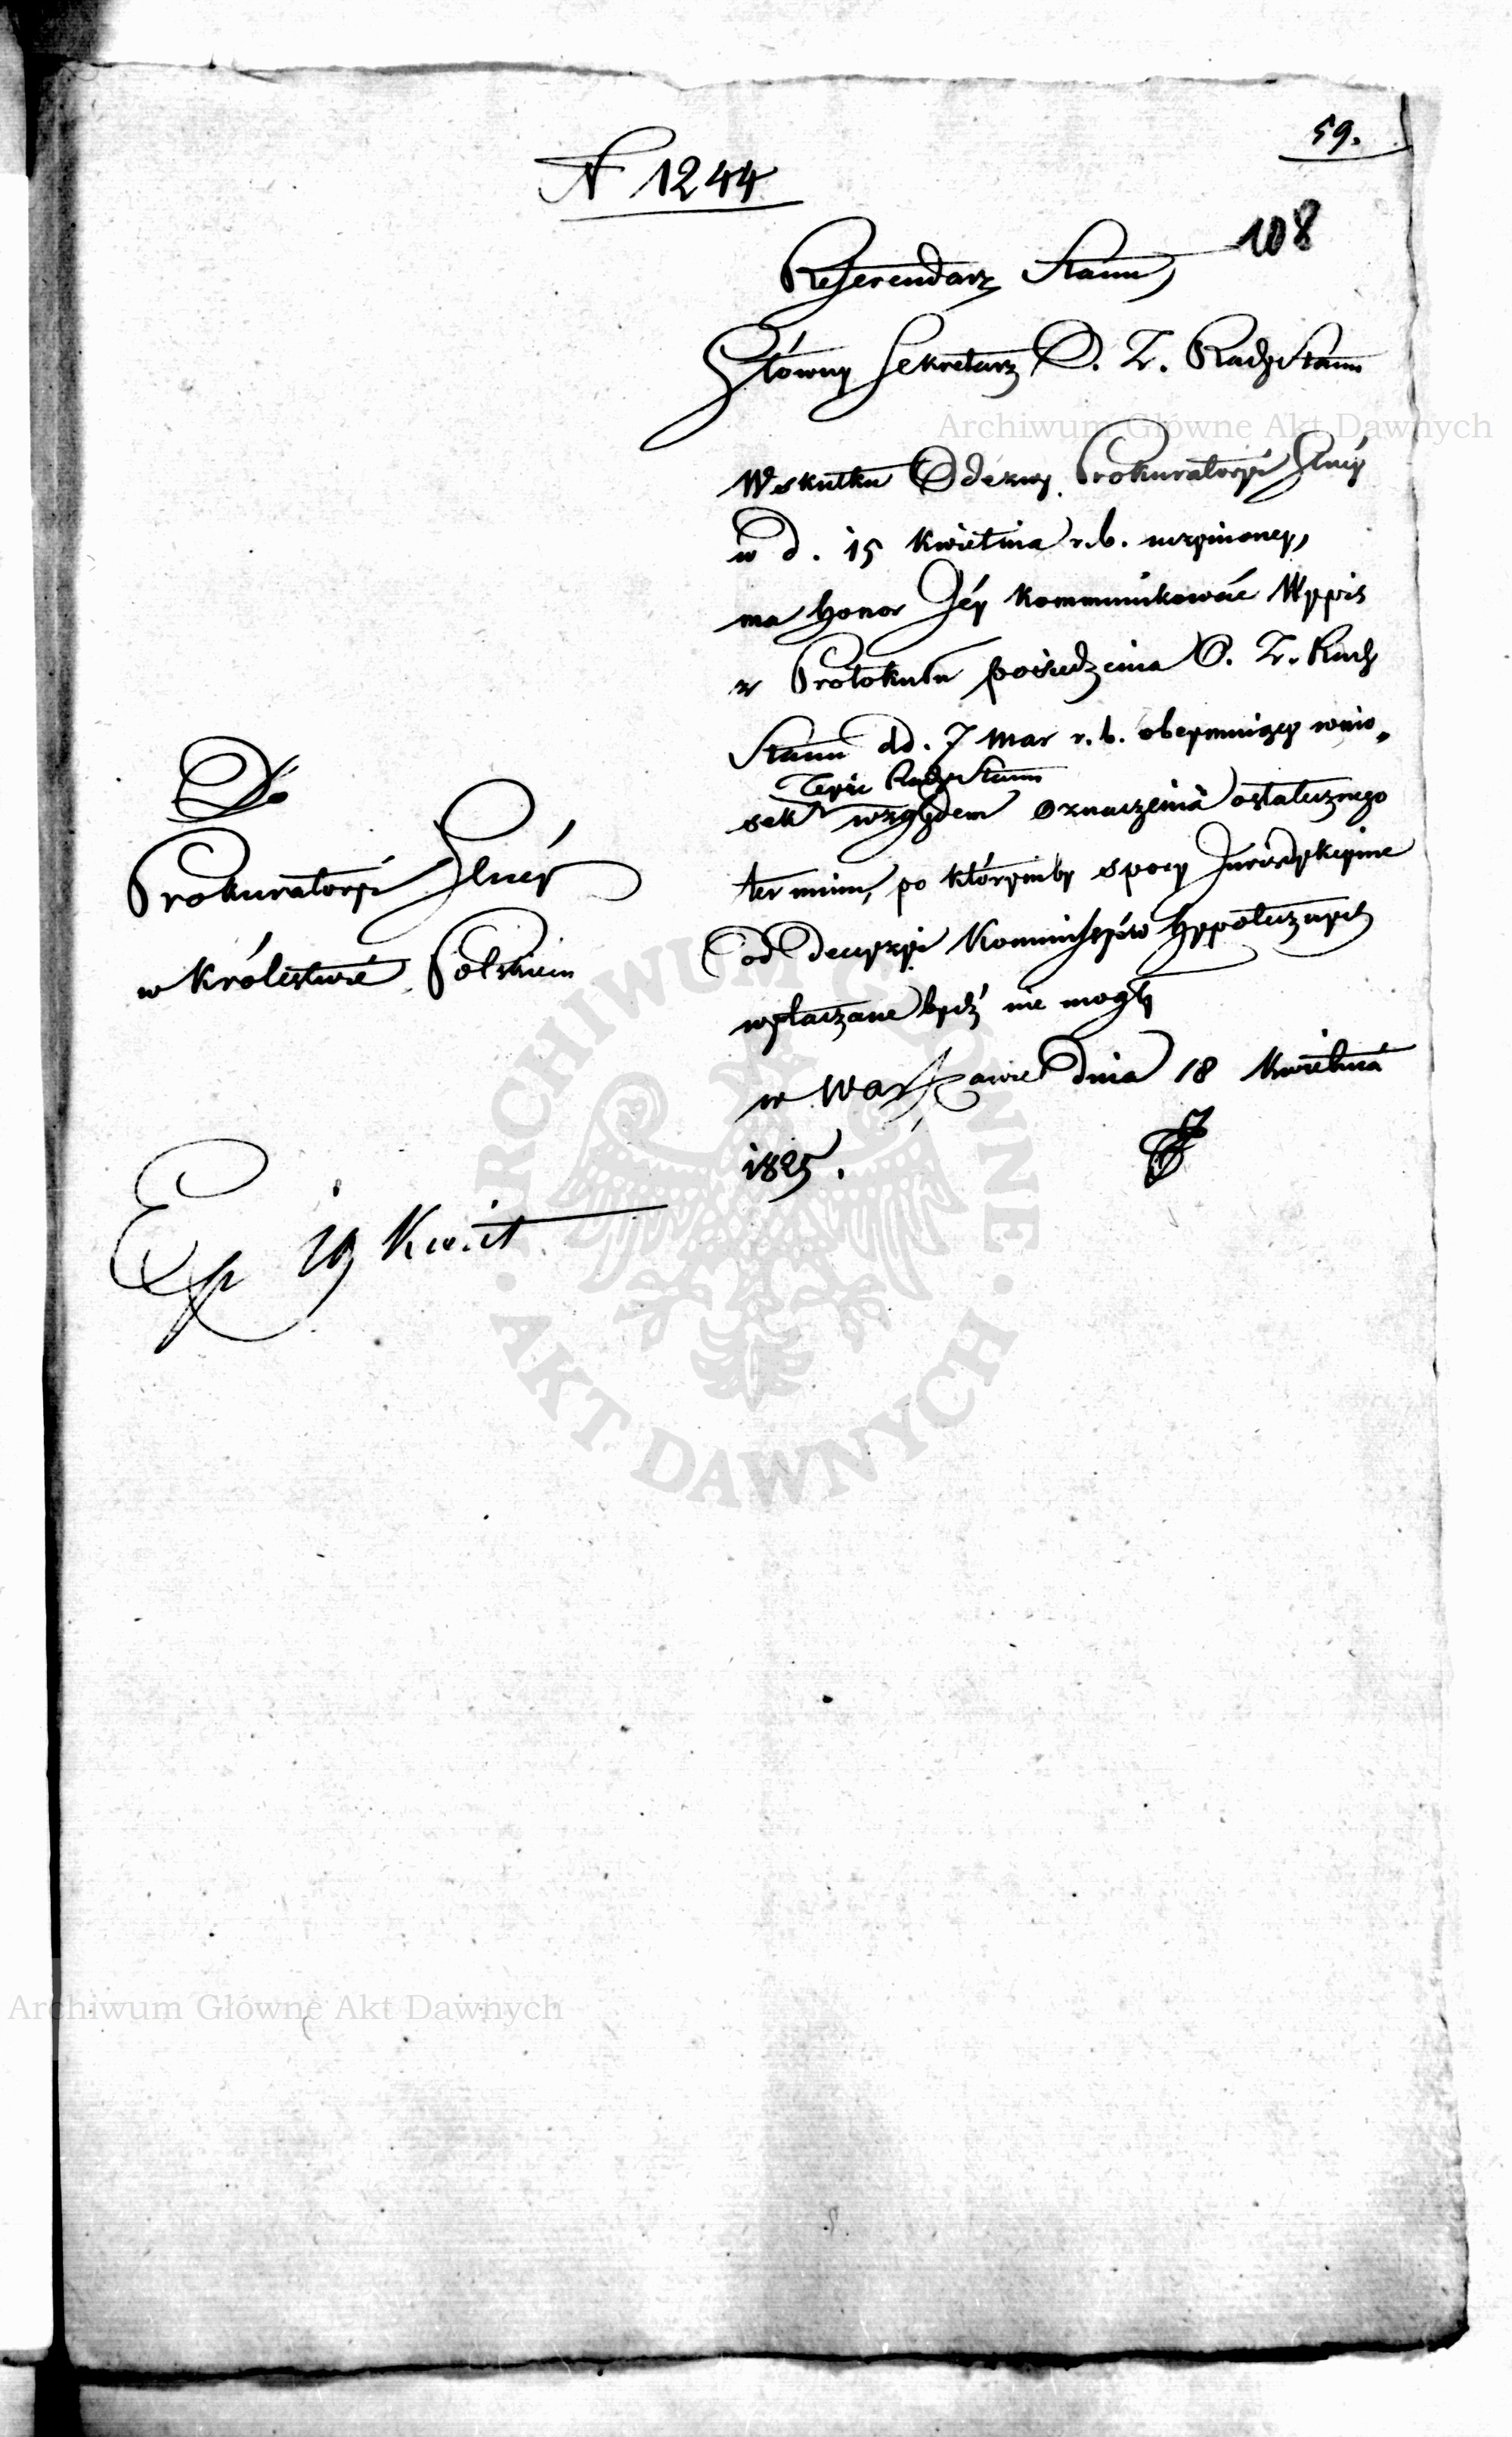 59.
N 1244
108
Referendarz Stanu
Główny Sekretarz O. Z. Rady Stanu
W skutku Odezwy Prokuratoryi Glney
w d. 15 Kwietnia r. b. uczynioney,
ma honor Jéy kommunikować Wypis
z Protokułu posiedzenia O. Z. Rady
Stanu dd. 7 Mar r. b. obeymuiący wnio„
Teyże Rady Stanu
sek względem oznaczenia ostatecznego
terminu, po którymby spory Jurisdykcyine
od decyzyi Kommissyiów Hypotecznych
wytaczane bydź nie mogły
w Warszawie dnia 18 Kwietnia
1825.
Do
Prokuratoryi Glnéy
w Królestwie Polskiem
Exp 19 Kwiet
Archiwum Główne Akt Dawnych
ARCHIWUM GŁÓWNE · AKT DAWNYCH ·
Archiwum Główne Akt Dawnych